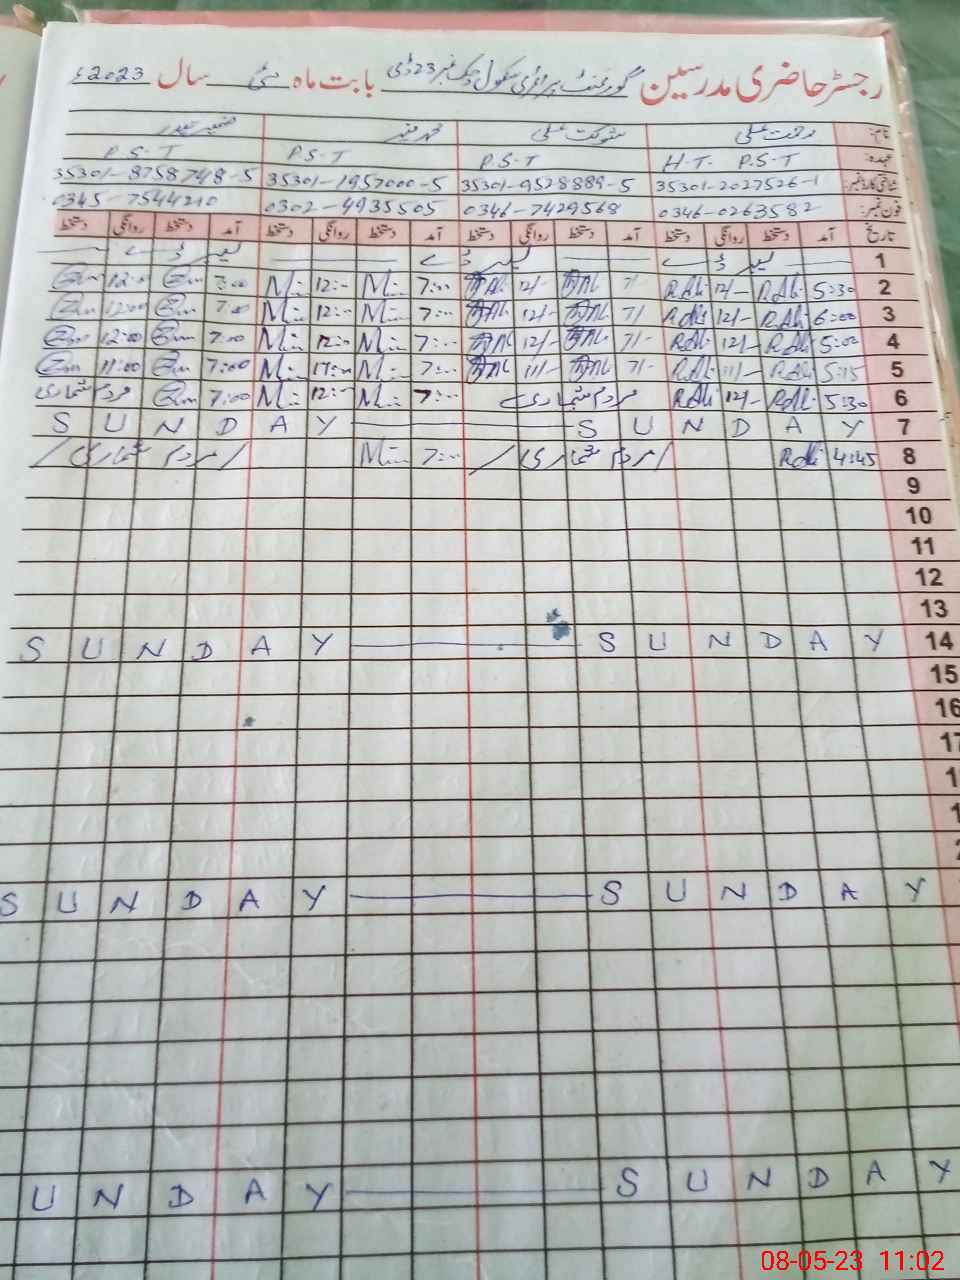 رجسٹر حاضری مدرسین گورنمنٹ پرائمری سکول چک نمبر 23 ڈی بابت ماہ مئی سال 2023ء
نام: رحمت علی شوکت علی محمد منیر ضمیر حیدر
عہدہ: H.T. P.S.T P.S.T P.S.T P.S.T
شناختی کارڈ نمبر: 35301-2027526-1 35301-9528889-5 35301-1957000-5 35301-8758748-5
فون نمبر: 0346-0263582 0346-7429568 0302-4935505 0345-7544210
تاریخ آمد دستخط روانگی دستخط آمد دستخط روانگی دستخط آمد دستخط روانگی دستخط آمد دستخط روانگی دستخط
1 لیبر ڈے لیبر ڈے لیبر ڈے
2 5:30 R.Ali 12/- R.Ali 7/- 12/- 7:-- 12:-- 7:00 12:00
3 6:00 R.Ali 12/- R.Ali 7/- 12/- 7:-- 12:-- 7:00 12:00
4 5:00 R.Ali 12/- R.Ali 7/- 12/- 7:-- 12:-- 7:00 12:00
5 5:15 R.Ali 11/- R.Ali 7/- 11/- 7:-- 11:-- 7:00 11:00
6 5:30 R.Ali 12/- R.Ali مردم شماری 7:-- 12:-- 7:00 مردم شماری
S U N D A Y S U N D A Y 7
8 4:45 R.Ali مردم شماری 7:-- مردم شماری
9
10
11
12
13
S U N D A Y S U N D A Y 14
15
16
17
1
1
2
S U N D A Y S U N D A Y
U N D A Y S U N D A Y
08-05-23 11:02